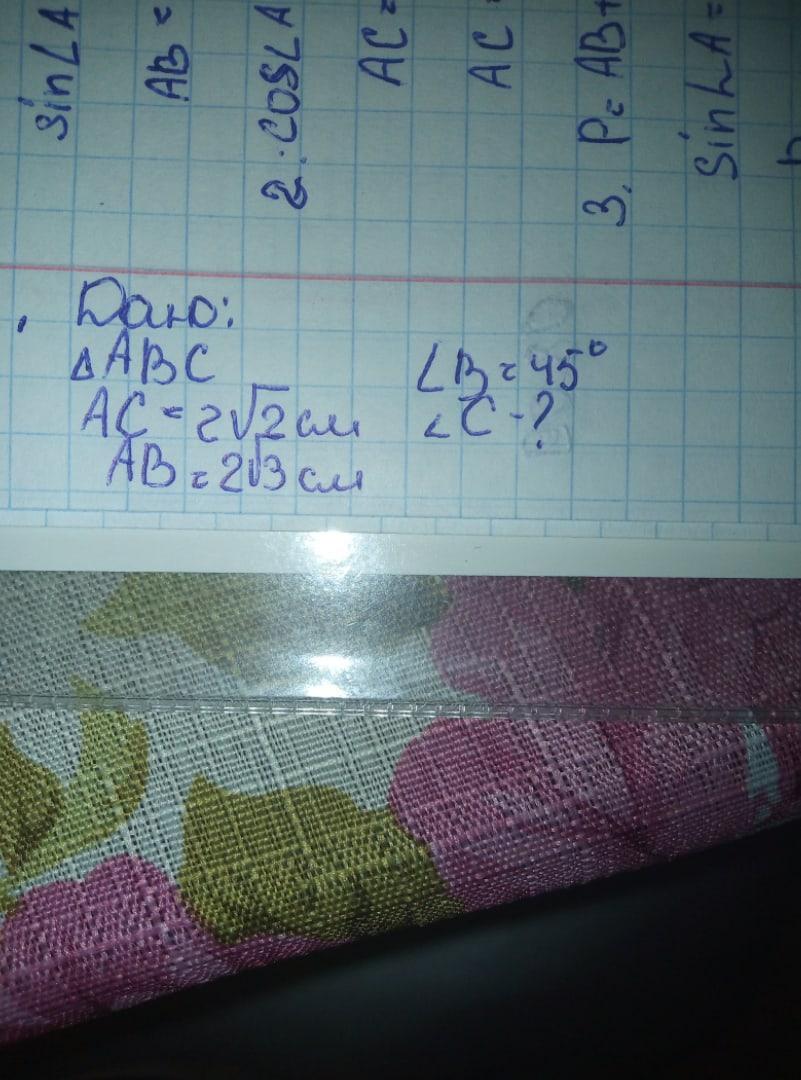 sin∠A
AB =
2. cos∠A
AC =
AC =
3. P = AB+
sin∠A =
Дано:
△ABC
∠B = 45°
AC = 2√2 см
∠C - ?
AB = 2√3 см